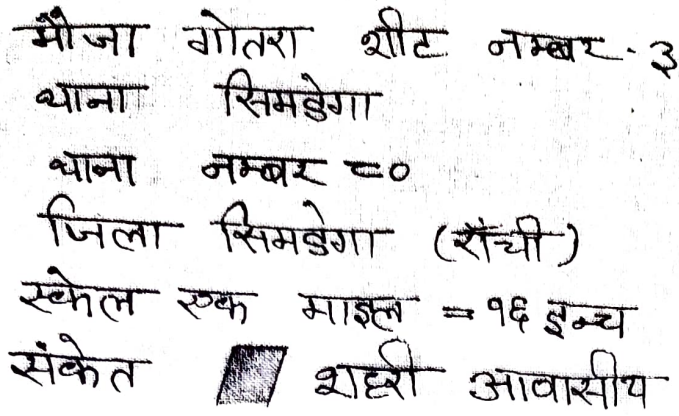 मौजा गोतरा शीट नम्बर - ३
थाना सिमडेगा
थाना नम्बर ८०
जिला सिमडेगा (राँची)
स्केल एक माइल = १६ इन्च
संकेत शहरी आवासीय